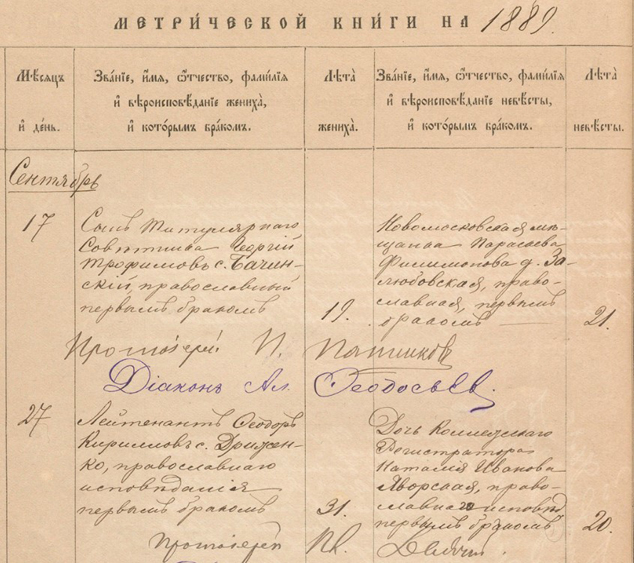 МЕТРИ́ЧЕСКОЙ КНИ́ГИ НА 1889.
Мѣ́сяцъ
и҆ де́нь.
Зва́нїе, и҆́мя, ѻ҆́тчество, фами́лїя
и҆ вѣроисповѣ́данїе жениха̀,
и҆ кото́рымъ бра́комъ.
Лѣ́та
жениха̀.
Зва́нїе, и҆́мя, ѻ҆́тчество, фами́лїя
и҆ вѣроисповѣ́данїе невѣ́сты,
и҆ кото́рымъ бра́комъ.
Лѣ́та
невѣ́сты.
Сентябрь
17
Сынъ Титулярнаго
Совѣтника Георгій
Трофимовъ с. Бачин-
скій, православный
первымъ бракомъ
19.
Новомосковская мѣ-
щанка Параскева
Филимонова д. За-
любовская, право-
славная, первымъ
бракомъ
21.
Протоіерей П.
Діаконъ Ал. Ѳеодосьевъ.
27
Лейтенантъ Ѳеодоръ
Кирилловъ с. Дрижен-
ко, православнаго
исповѣданія
первымъ бракомъ
31.
Дочь Коллежскаго
Регистратора
Наталія Иванова
Яворская, право-
славнаго исповѣд
первымъ бракомъ
20.
Протоіерей